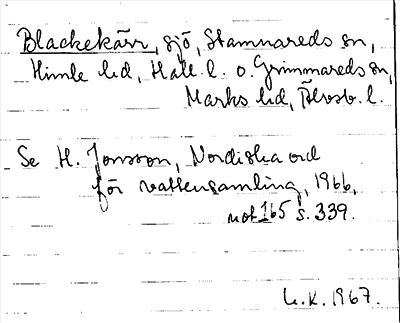 Blackekärr, sjö, Stamnareds sn,
Himle hd, Hall. l. o. Grimmareds sn,
Marks hd, Älvsb. l.
Se H. Jonsson, Nordiska ord
för vattensamling, 1966,
not 165 s. 339.
U.K. 1967.